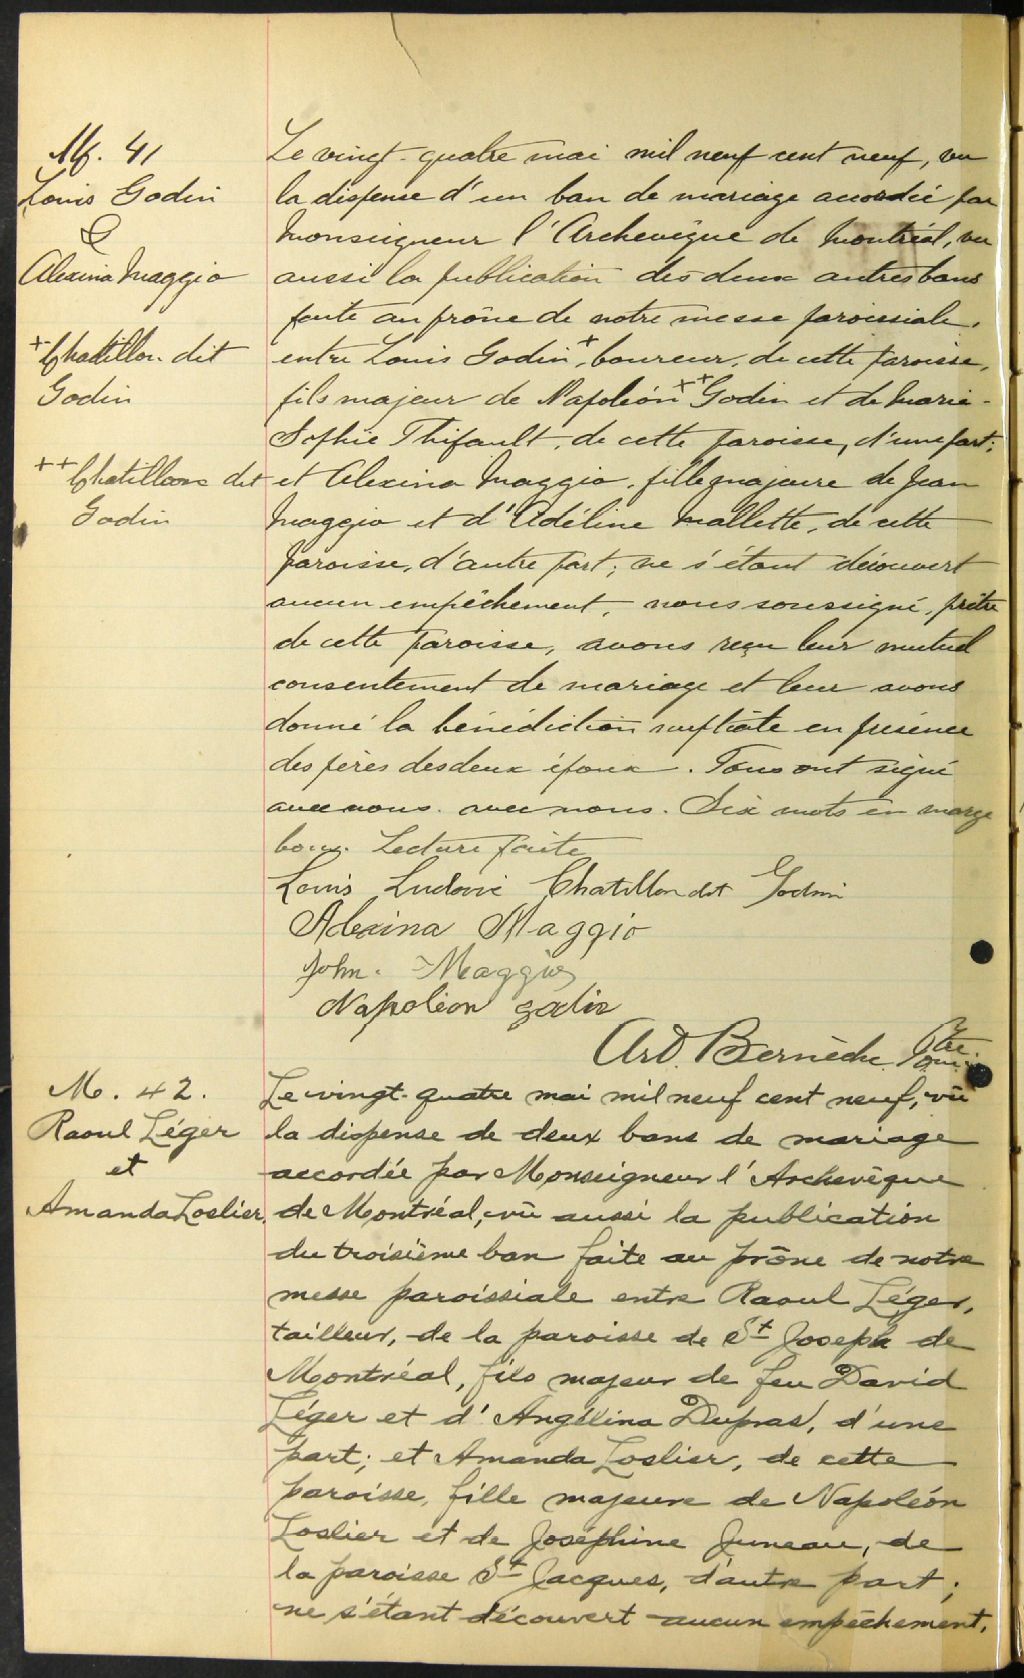 M. 41
Louis Godin
&
Alexina Maggio
+ Chatillon dit
Godin
++ Chatillon dit
Godin
Le vingt-quatre mai mil neuf cent neuf, vu
la dispense d'un ban de mariage accordée par
Monseigneur l'Archevêque de Montréal, vu
aussi la publication des deux autres bans
faite au prône de notre messe paroissiale,
entre Louis Godin +, boureur, de cette paroisse,
fils majeur de Napoléon ++ Godin et de Marie-
Sophie Thifault, de cette paroisse, d'une part;
et Alexina Maggio, fille majeure de Jean
Maggio et d'Adéline Mallette, de cette
paroisse, d'autre part; ne s'étant découvert
aucun empêchement, nous soussigné, prêtre
de cette paroisse, avons reçu leur mutuel
consentement de mariage et leur avons
donné la bénédiction nuptiale en présence
des pères des deux époux. Tous ont signé
avec nous. avec nous. Six mots en marge
bons. Lecture faite
Louis Ludovic Chatillon dit Godin
Alexina Maggio
John. Maggio
Napoleon godin
Ard. Bernèche Ptre
M. 42.
Raoul Léger
et
Amanda Loslier.
Le vingt-quatre mai mil neuf cent neuf, vû
la dispense de deux bans de mariage
accordée par Monseigneur l'Archevêque
de Montréal, vû aussi la publication
du troisième ban faite au prône de notre
messe paroissiale entre Raoul Léger,
tailleur, de la paroisse de St Joseph de
Montréal, fils majeur de feu David
Léger et d'Angélina Dupras, d'une
part; et Amanda Loslier, de cette
paroisse, fille majeure de Napoléon
Loslier et de Joséphine Juneau, de
la paroisse St Jacques, d'autre part;
ne s'étant découvert aucun empêchement,